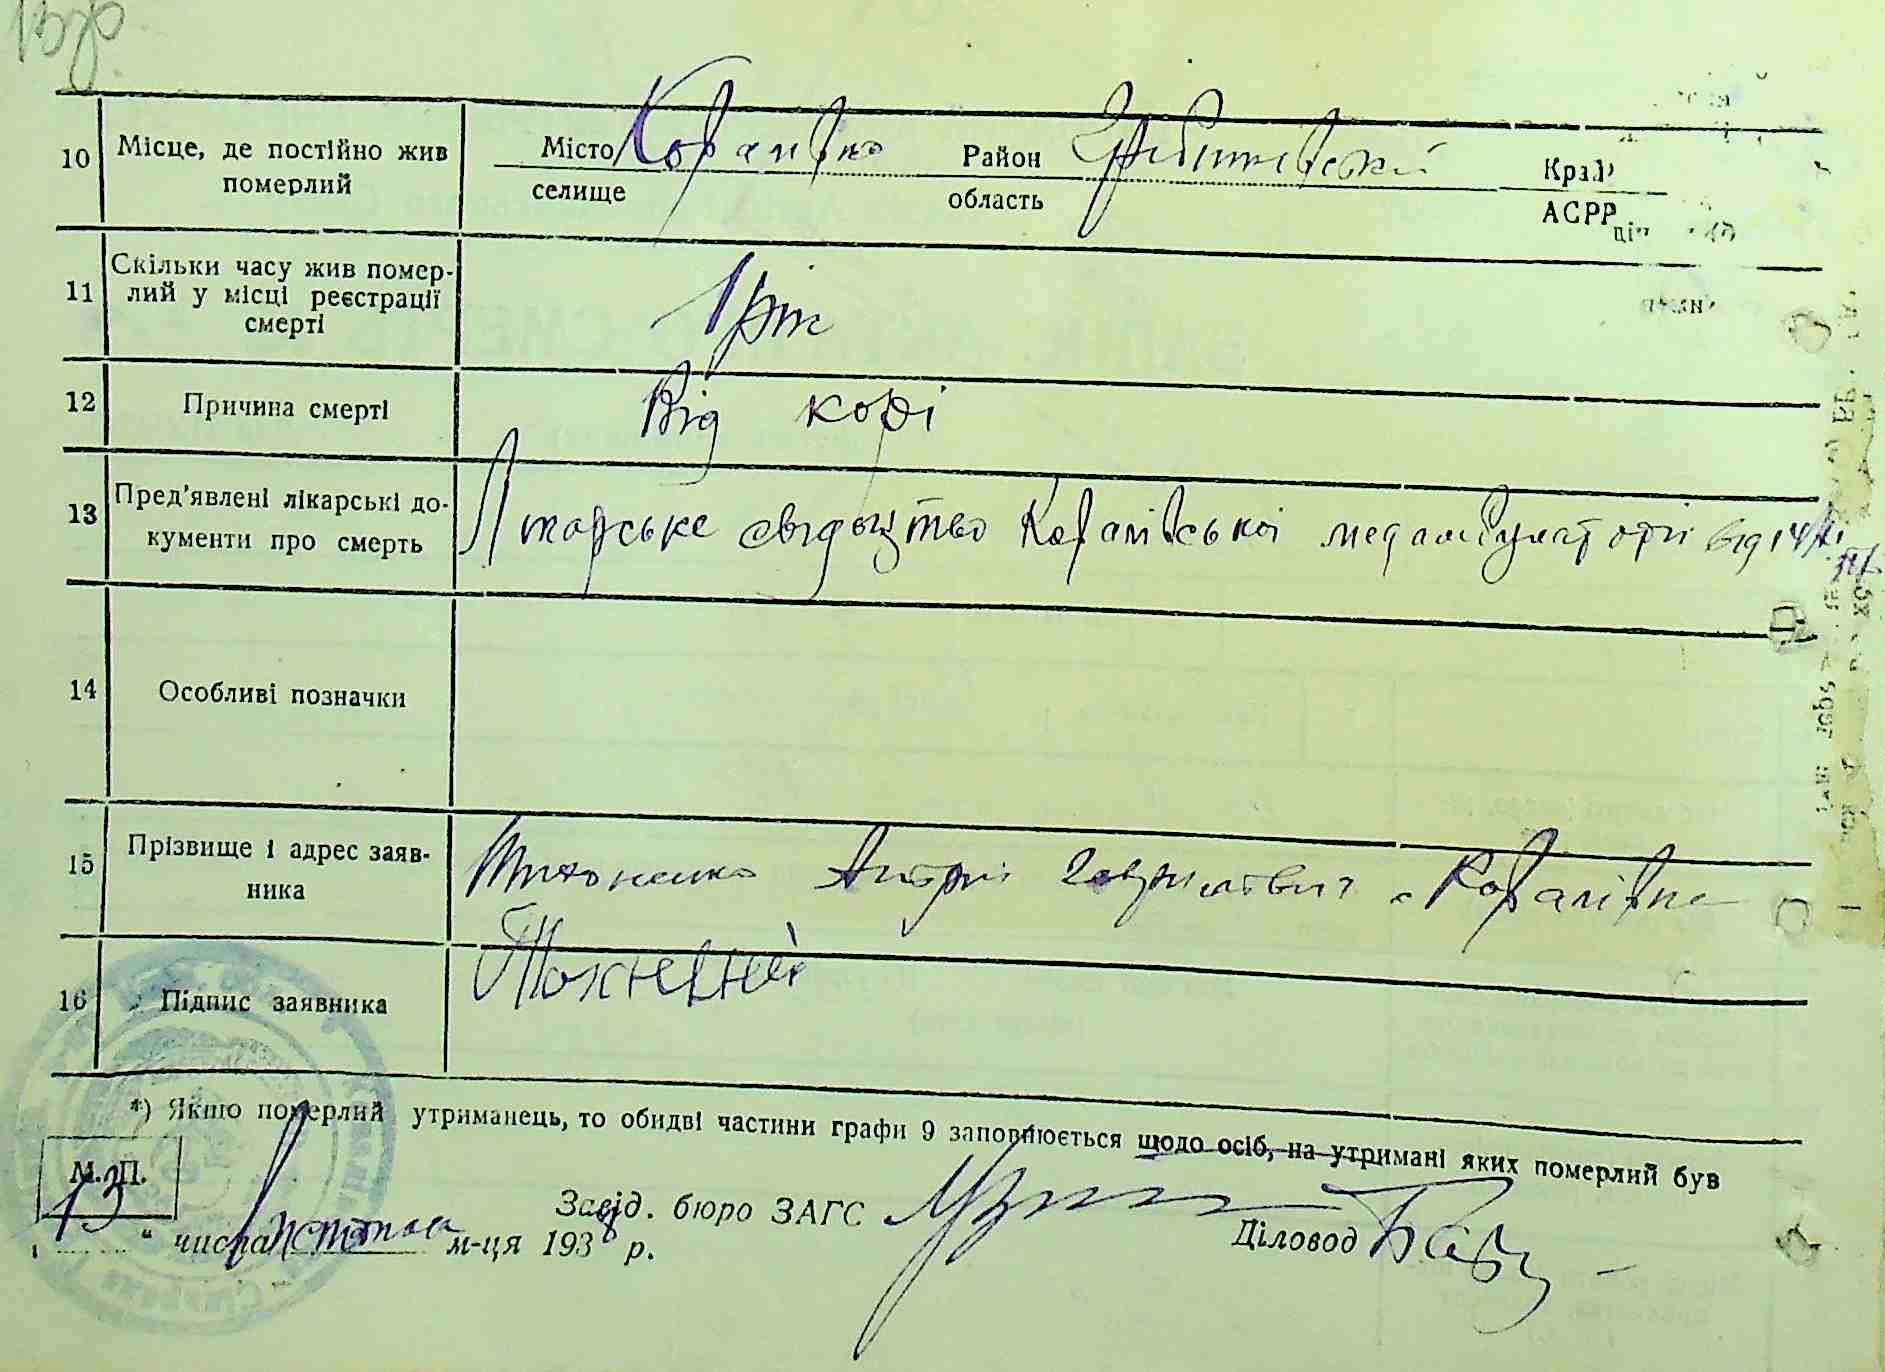 10 Місце, де постійно жив
померлий
Місто Ковалівка Район
селище область
Край
АСРР
11 Скільки часу жив помер-
лий у місці реєстрації
смерті
1 рік
12 Причина смерті Від корі
13 Пред'явлені лікарські до-
кументи про смерть
Лікарське свідоцтво Ковалівської медамбулаторії від
14 Особливі позначки
15 Прізвище і адрес заяв-
ника
Андрій с Ковалівка
16 Підпис заявника
*) Якшо померлий утриманець, то обидві частини графи 9 заповнюється щодо осіб, на утримані яких померлий був
М. П.
Завід. бюро ЗАГС
Діловод
13 " числа Лютого м-ця 1938 р.